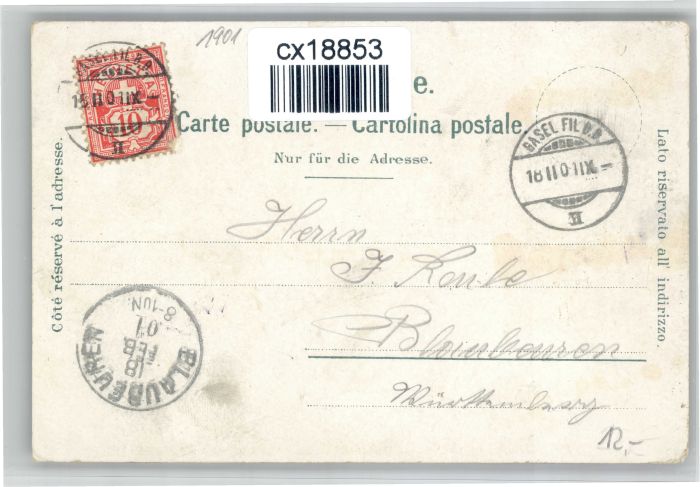 1901
cx18853
e.
Carte postale. — Cartolina postale.
Nur für die Adresse.
Côté réservé à l'adresse.
Lato riservato all' indirizzo.
HELVETIA
10
BASEL FIL B.B.
BASEL FIL B.B.
18.II.01.-IX
18.II.01.XI-
II
II
Herrn
J.
Blaubeuren
Württemberg
BLAUBEUREN
18
FEB
01
8-1UN.
12,-